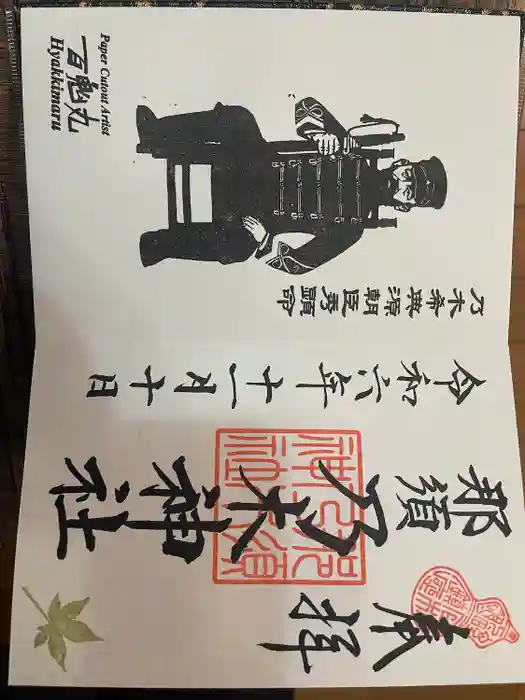 奉拝
那須乃木神社
令和六年十一月十日
乃木希典源朝臣秀顕命
Paper Cutout Artist
百鬼丸
Hyakkimaru